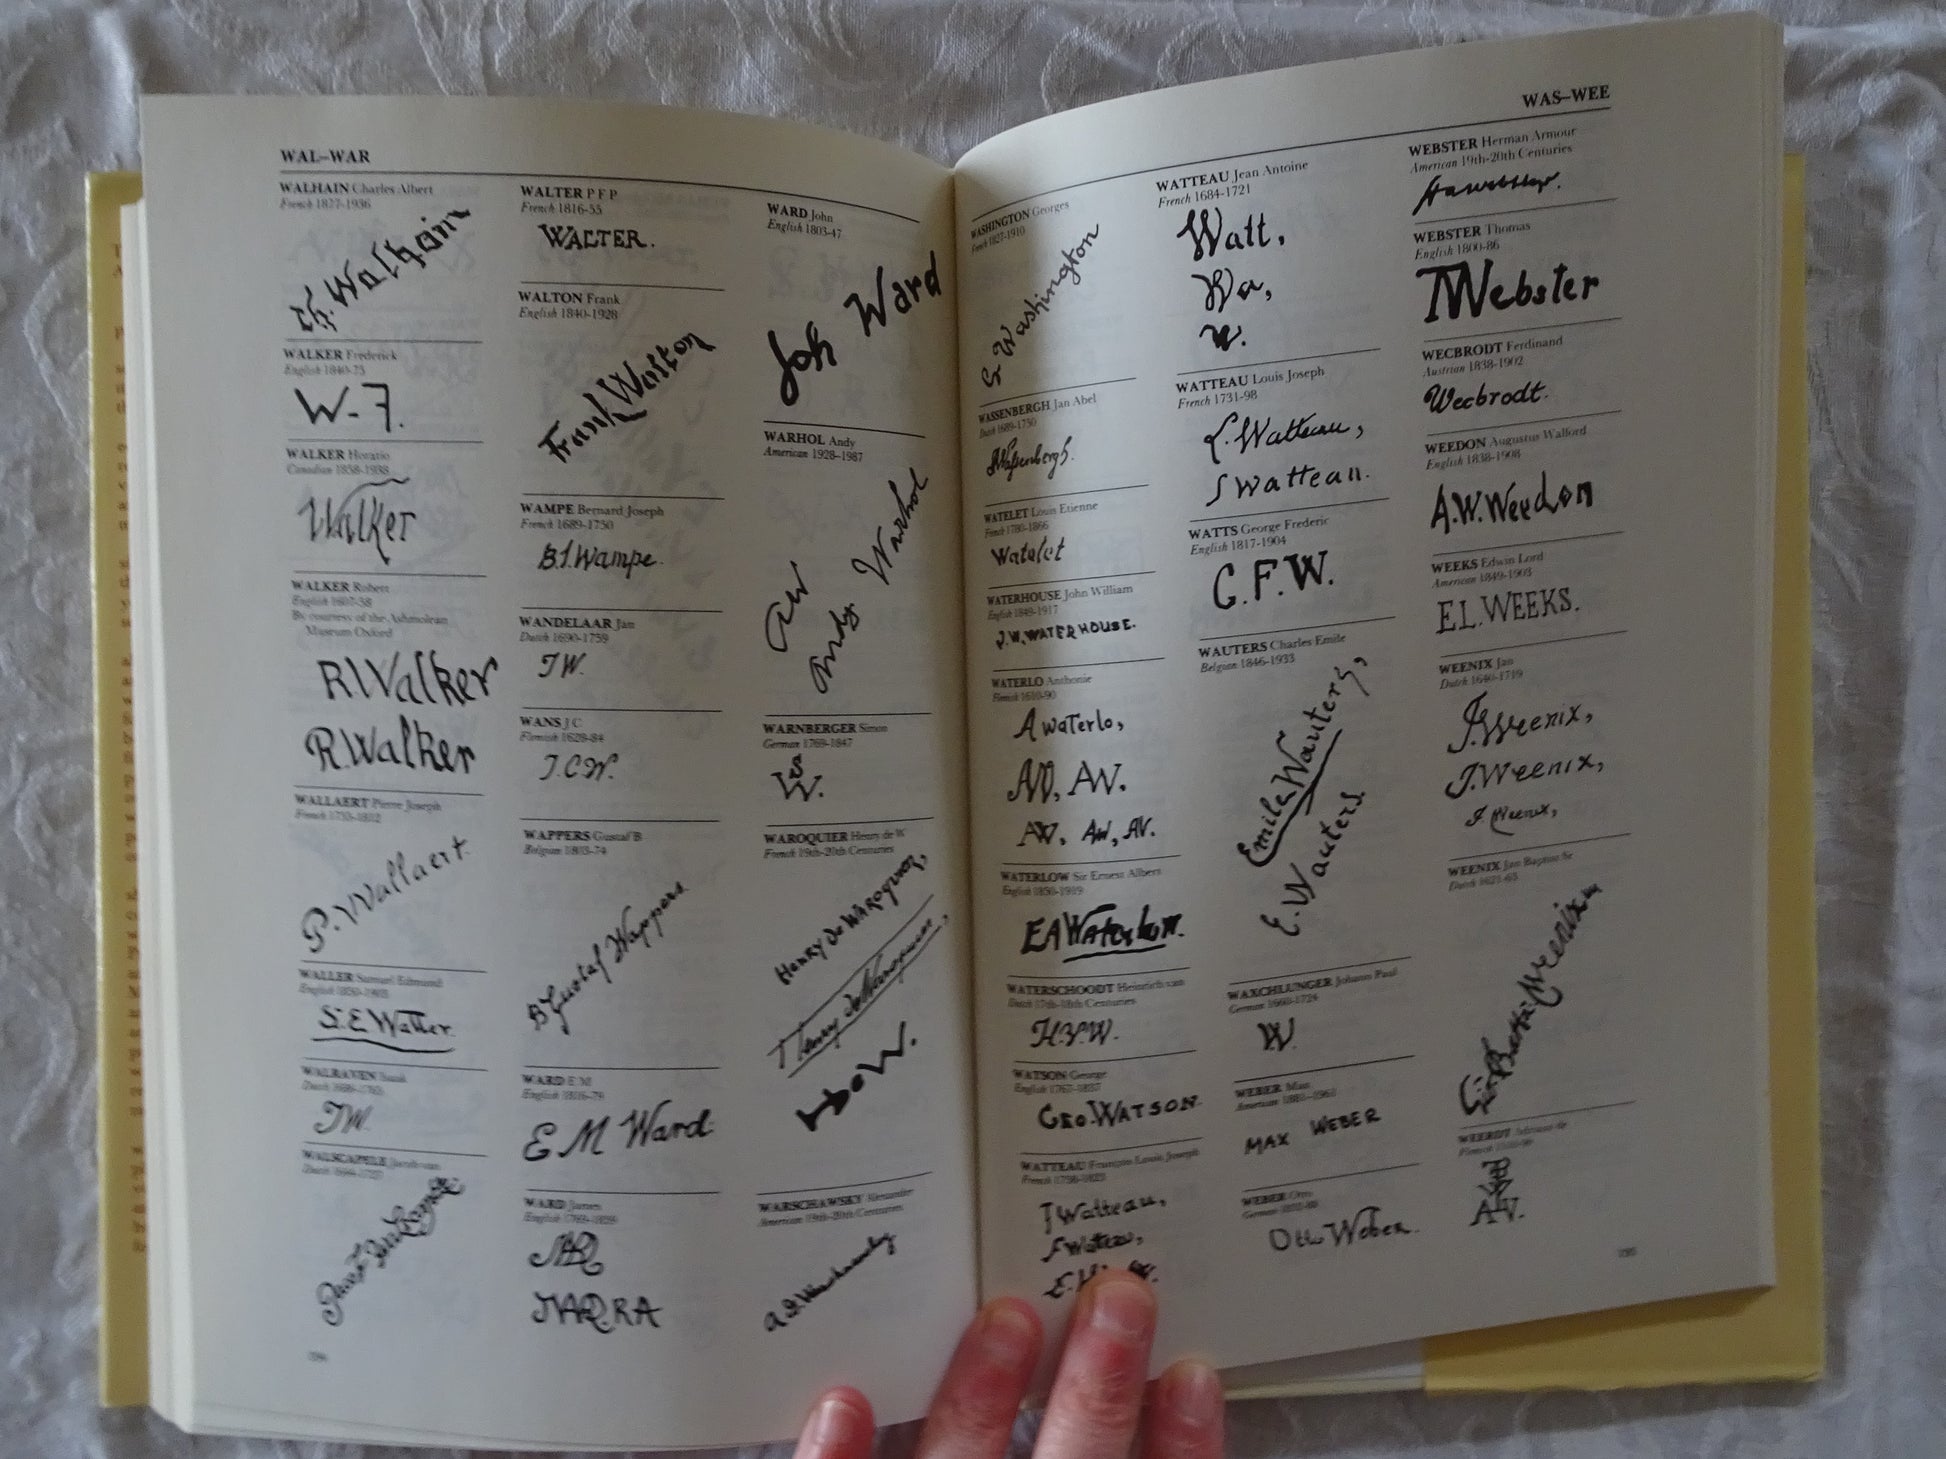 WAL–WAR
WALHAIN Charles Albert
French 1877-1936
Ch. Walhain
WALKER Frederick
English 1840-75
W-F.
WALKER Horatio
Canadian 1858-1938
Walker
WALKER Robert
English 1607-58
By courtesy of the Ashmolean
Museum Oxford
R Walker
R. Walker
WALLAERT Pierre Joseph
French 1753-1812
P. Wallaert.
WALLER Samuel Edmund
English 1850-1903
S.E Waller.
WALRAVEN
Dutch
WALSCAPELE Jacob van
Dutch 1644-1727
WALTER P F P
French 1816-55
WALTER.
WALTON Frank
English 1840-1928
Frank Walton
WAMPE Bernard Joseph
French 1689-1750
B.J. Wampe.
WANDELAAR Jan
Dutch 1690-1759
J W.
WANS J C
Flemish 1628-84
J.C.W.
WAPPERS Gustaf B
Belgian 1803-74
B Gustaf Wappers
WARD E M
English 1816-79
E M Ward.
WARD James
English 1769-1859
WARD John
English 1803-47
Joh Ward
WARHOL Andy
American 1928-1987
AW
Andy Warhol
WARNBERGER Simon
German 1769-1847
WAROQUIER Henry de W
French 19th-20th Centuries
Henry de Waroquier,
Henry de Waroquier,
HdeW.
WARSCHAWSKY Alexander
American 19th-20th Centuries
WAS–WEE
WASHINGTON Georges
French 1827-1910
G Washington
WASSENBERGH Jan Abel
Dutch 1689-1750
Wassenbergh.
WATELET Louis Etienne
French 1780-1866
Watelet
WATERHOUSE John William
English 1849-1917
J.W. WATERHOUSE.
WATERLO Anthonie
Flemish 1610-90
A waterlo,
AW, AW.
AW, AW, AW.
WATERLOW Sir Ernest Albert
English 1850-1919
EA Waterlow.
WATERSCHOODT Heinrich van
Dutch 17th-18th Centuries
H.V.W.
WATSON George
English 1767-1837
GEO. WATSON.
WATTEAU François Louis Joseph
French 1758-1823
f Watteau,
WATTEAU Jean Antoine
French 1684-1721
Watt,
Wa,
W.
WATTEAU Louis Joseph
French 1731-98
L. Watteau,
J Watteau.
WATTS George Frederic
English 1817-1904
G.F.W.
WAUTERS Charles Emile
Belgian 1846-1933
Emile Wauters,
E. Wauters.
WAXCHLUNGER Johann Paul
German 1660-1724
W.
WEBER Max
American 1881-1961
MAX WEBER
WEBER Otto
German 1832-88
Otto Weber.
WEBSTER Herman Armour
American 19th-20th Centuries
WEBSTER Thomas
English 1800-86
TWebster
WECBRODT Ferdinand
Austrian 1838-1902
Wecbrodt.
WEEDON Augustus Walford
English 1838-1908
A.W. Weedon
WEEKS Edwin Lord
American 1849-1903
E.L. WEEKS.
WEENIX Jan
Dutch 1640-1719
J. Weenix,
J. Weenix,
J. Weenix,
WEENIX Jan Baptist Sr
Dutch 1621-63
WEERDT Adriaen de